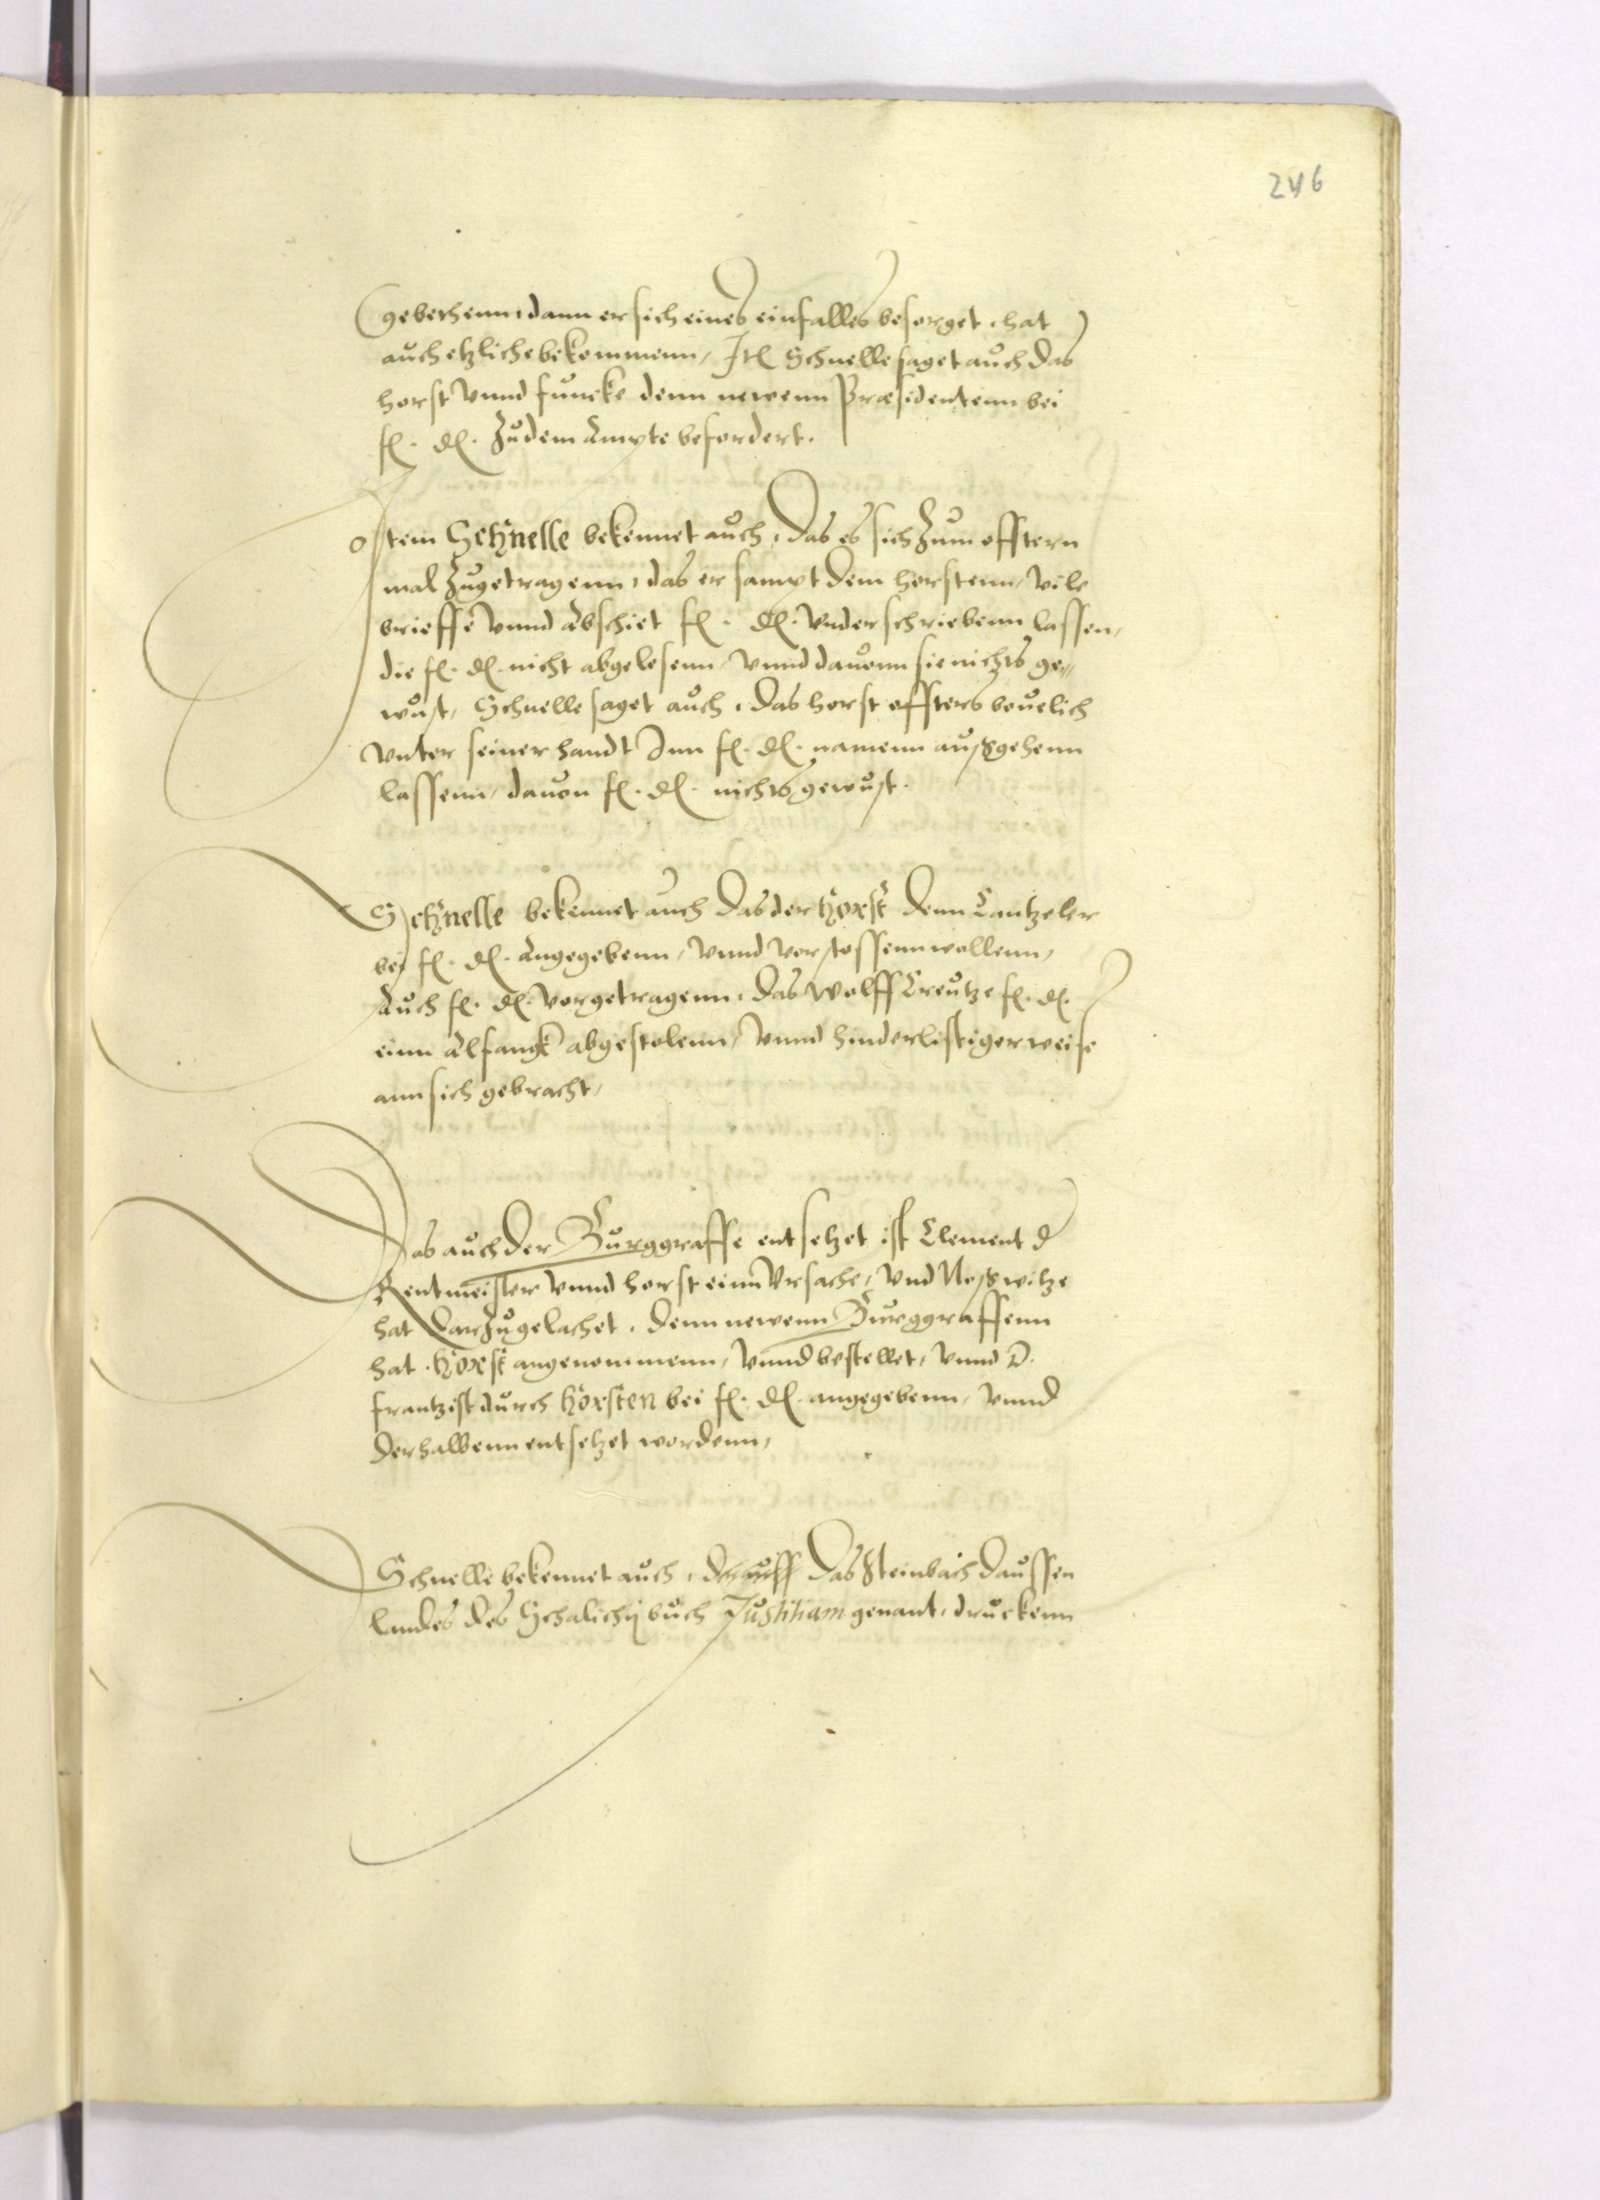 246
gebethenn, dann er sich eines einfalles besorget, hat
auch etzliche bekommenn, Itl Schnelle saget auch das
horst vnnd funcke denn newenn Præsidentenn bei
fl. dl. zu dem Ampte befordert.
Item Schnelle bekennet auch, das es sich zum offtern
mal zugetragenn, das er sampt dem horstenn, vile
brieffe vnnd Abschiet fl. dl. vnderschriebenn lassen,
die fl. dl. nicht abgelesenn, vnnd dauonn sie nichts ge„
wust, Schnelle saget auch, das horst offters beuelich
vnter seiner handt Inn fl. dl. namenn außgehenn
lassenn, dauon fl. dl. nichts gewust.
Schnelle bekennet auch das der horst denn Cantzeler
bej fl. dl. Angegebenn, vnnd verstossenn wollenn,
Auch fl. dl. vorgetragenn, das Wolff Creutze fl. dl.
einn Alfangk abgestolenn, vnnd hinderlistiger weise
ann sich gebracht,
Das auch der Burggraffe entsetzet ist Clement d
Rentmeister vnnd horst einn vrsache, vnd Noßwitze
hat darzu gelachet, denn newenn Burggraffenn
hat horst angenommenn, vnnd bestellet, vnnd D.
frantz ist durch horsten bei fl. dl. angegebenn, vnnd
derhalbenn entsetzet wordenn,
Schnelle bekennet auch, das Steinbach daussen
landes des Schalichij buch Justitiam genant, druckenn